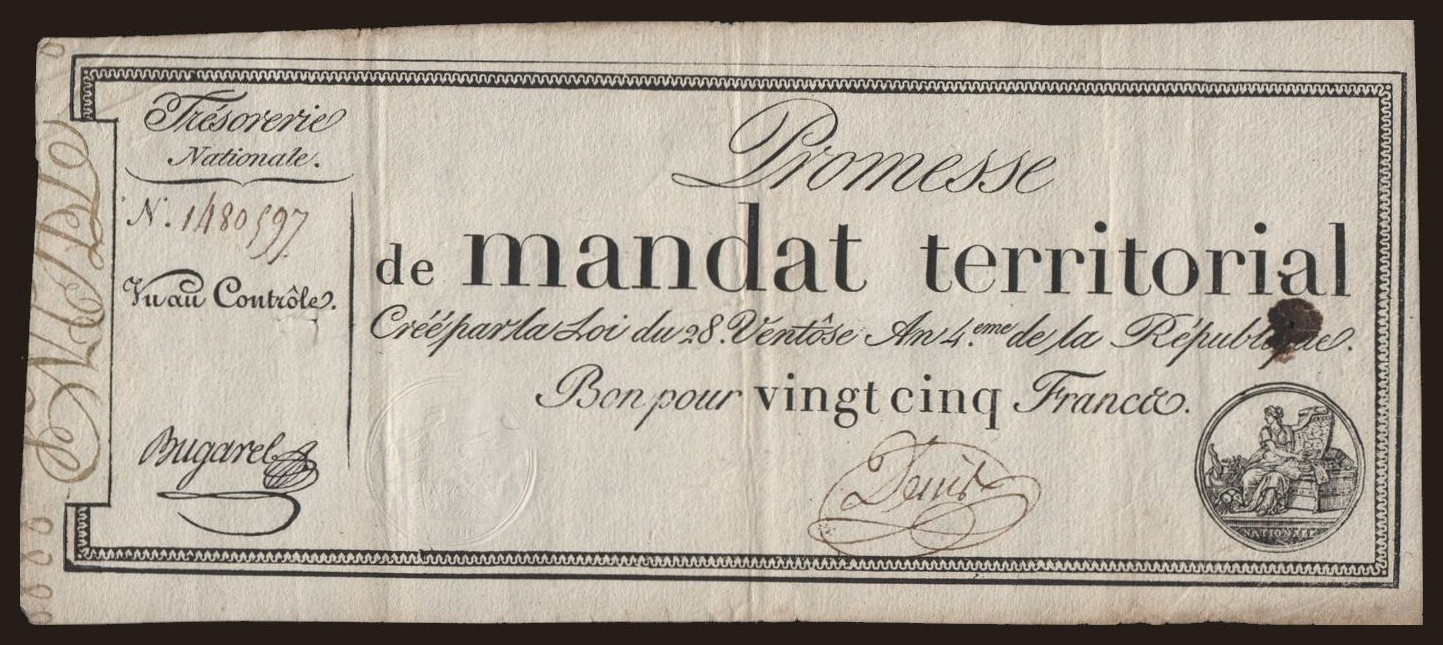 Trésorerie
Nationale.
N. 1480597
Vu au Contrôle.
Bugarel
Promesse
de mandat territorial
Créé par la Loi du 28. Ventôse An 4.eme de la République.
Bon pour vingt cinq Francs.
Denis
NATIONALE